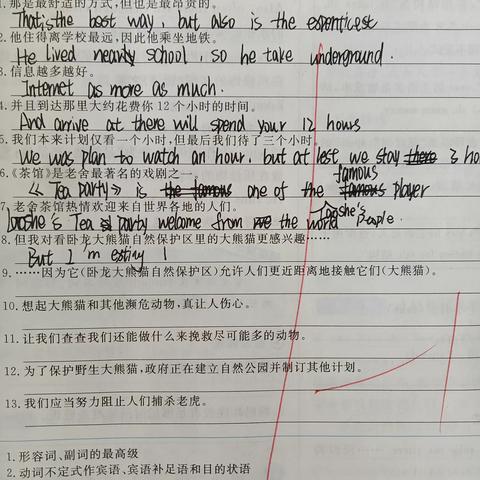 1. 那是最舒适的方式,但也是最昂贵的。
That's the best way, but also is the
2. 他住得离学校最远,因此他乘坐地铁。
He lived nearly school, so he take underground.
3. 信息越多越好。
Internet as more as much.
4. 并且到达那里大约花费你 12 个小时的时间。
And arrive at there will spend your 12 hours
5. 我们本来计划仅看一个小时,但最后我们待了三个小时。
We was plan to watch an hour, but at lest we stay 3 ho
6. 《茶馆》是老舍最著名的戏剧之一。
famous
《Tea party》 is one of the player
7. 老舍茶馆热情欢迎来自世界各地的人们。
Laoshe's
Laoshe's Tea party welcome from the world people.
8. 但我对看卧龙大熊猫自然保护区里的大熊猫更感兴趣……
But I'm
9. ……因为它(卧龙大熊猫自然保护区)允许人们更近距离地接触它们(大熊猫)。
10. 想起大熊猫和其他濒危动物,真让人伤心。
11. 让我们查查我们还能做什么来挽救尽可能多的动物。
12. 为了保护野生大熊猫,政府正在建立自然公园并制订其他计划。
13. 我们应当努力阻止人们捕杀老虎。
1. 形容词、副词的最高级
2. 动词不定式作宾语、宾语补足语和目的状语